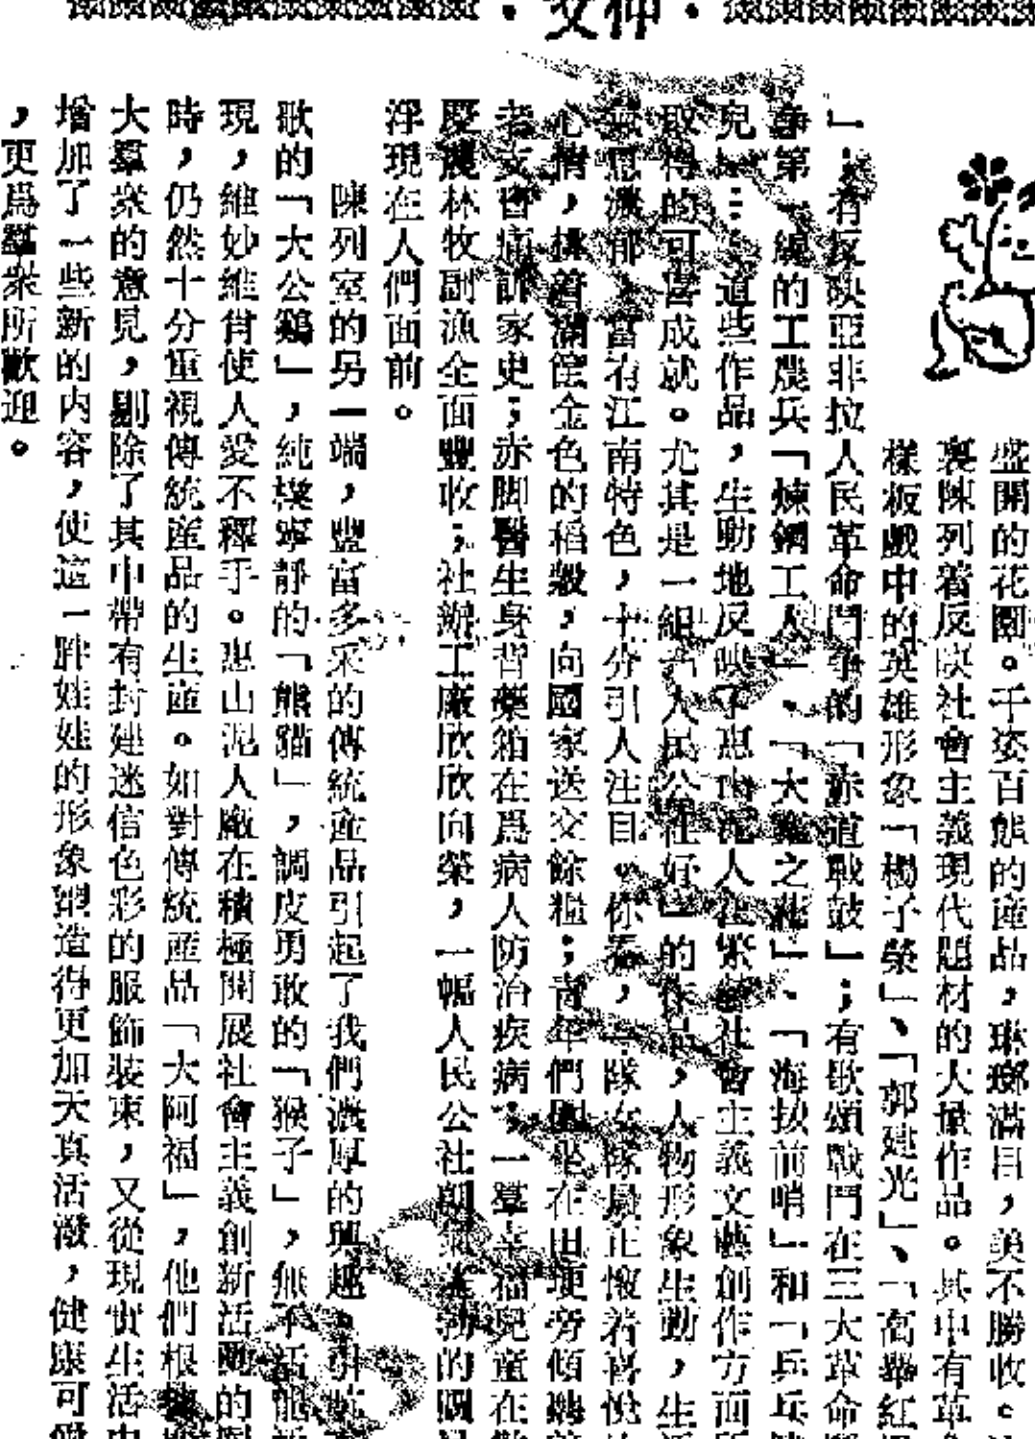 盛開的花園。千姿百態的產品，琳瑯滿目，美不勝收。
裏陳列着反映社會主義現代題材的大量作品。其中有革
樣板戲中的英雄形象「楊子榮」、「郭建光」、「高舉紅
」；有反映亞非拉人民革命鬥爭的「赤道戰鼓」；有歌頌戰鬥在三大革命
第一線的工農兵「煉鋼工人」、「大之花」、「海拔前哨」和「乒乓
兒……道些作品，生動地反映了惠山泥人在繁社會主義文藝創作方面所
取得的可喜成就。尤其是一組人民公社好」的作品，人物形象生動，生
濃郁，富有江南特色，十分引人注目。你看，一隊女隊員正懷着喜悅
心情，挑着滿筐金色的稻穀，向國家送交餘糧；青年們圍坐在田更旁傾聽
老支書痛訴家史；赤脚醫生身背藥箱在爲病人防治疾病；一羣幸福兒童在
慶農林牧副漁全面豐收；社辦工廠欣欣向榮，一幅人民公社朝氣勃的圖
浮現在人們面前。
陳列室的另一端，豐富多采的傳統產品引起了我們濃厚的興趣。引
歌的「大公鷄」，純樸寧靜的「熊貓」，調皮勇敢的「猴子」，無不活龍
現，維妙維肖使人愛不釋手。惠山泥人廠在積極開展社會主義創新活動的
時，仍然十分重視傳統產品的生產。如對傳統產品「大阿福」，他們根據
大羣衆的意見，剔除了其中帶有封建迷信色彩的服飾裝束，又從現實生活中
增加了一些新的内容，使這一胖娃娃的形象塑造得更加天真活潑，健康可愛
，更爲羣衆所歡迎。